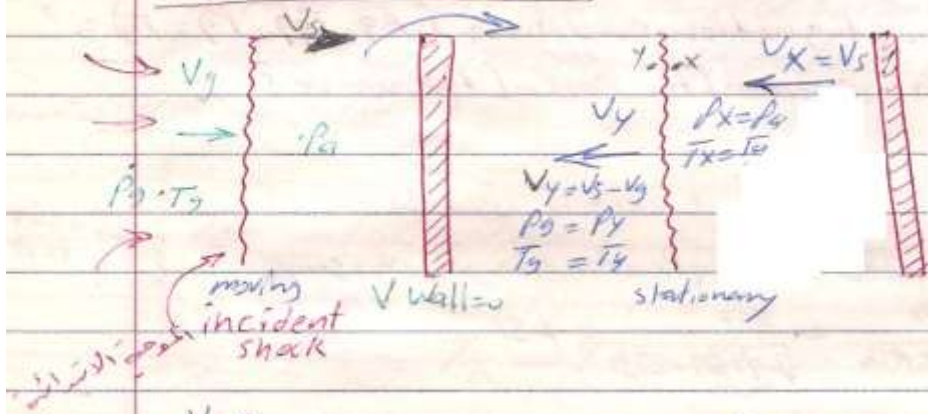 Vs
Vg
Pa
Pg . Tg
moving
incident
shock
V wall=0
Y. .X
Vx = Vs
Vy
Px=Pa
Tx=Ta
Vy=Vs-Vg
Pg = Py
Tg = Ty
stationary